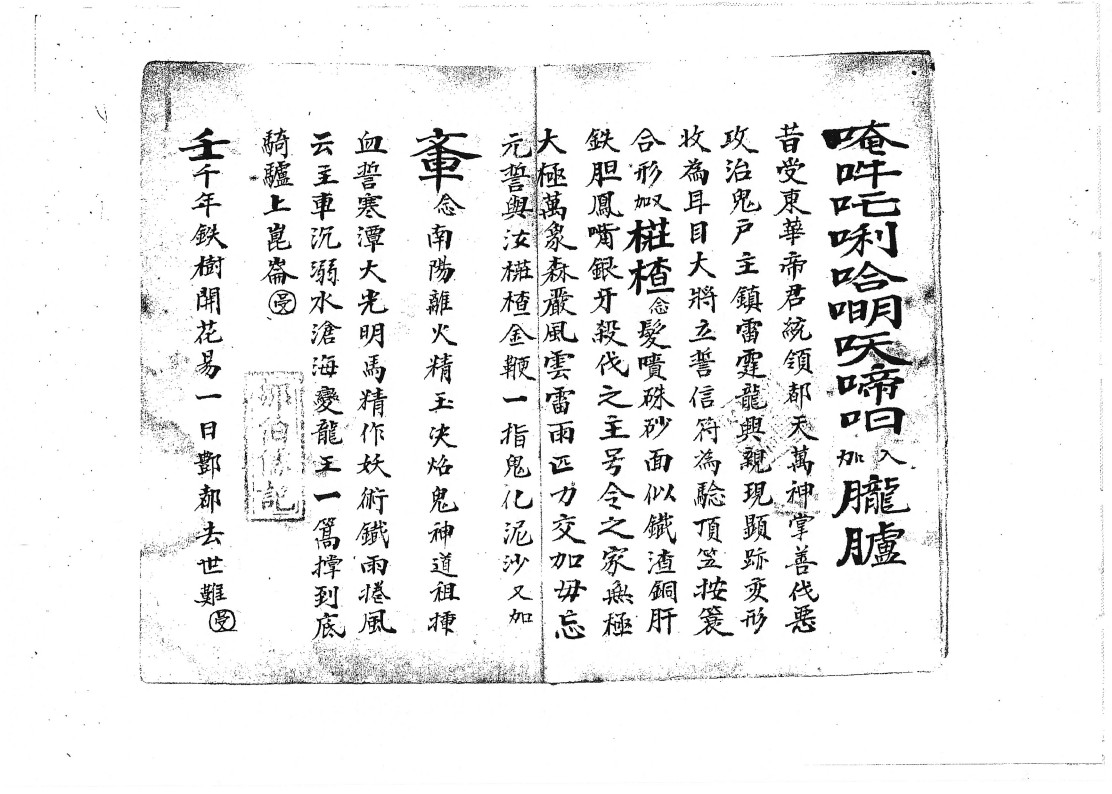 唵吽吒唎哈𠾴㕭啼𠯆入加朧臚
昔受東華帝君統領都天萬神掌善伐惡
攻治鬼戶主鎮雷霆龍興親現顕跡变形
收為耳目大將立誓信符為驗頂笠按簑
合形加又𣖕楂念髮噴硃砂面似鐵渣銅肝
鉄胆鳳嘴銀牙殺伐之主号令之家無極
大極萬象森嚴風雲雷雨匹力交加毋忘
元誓與汝𣖕楂金鞭一指鬼化泥沙又加
念南陽離火精玉决烙鬼神道祖揷
血誓寒潭大光明馬精作妖術鐵雨捲風
云主車沉溺水滄海變龍王一篙撑到底
騎驢上崑崙
壬千年鉄樹開花易一日酆都去世難